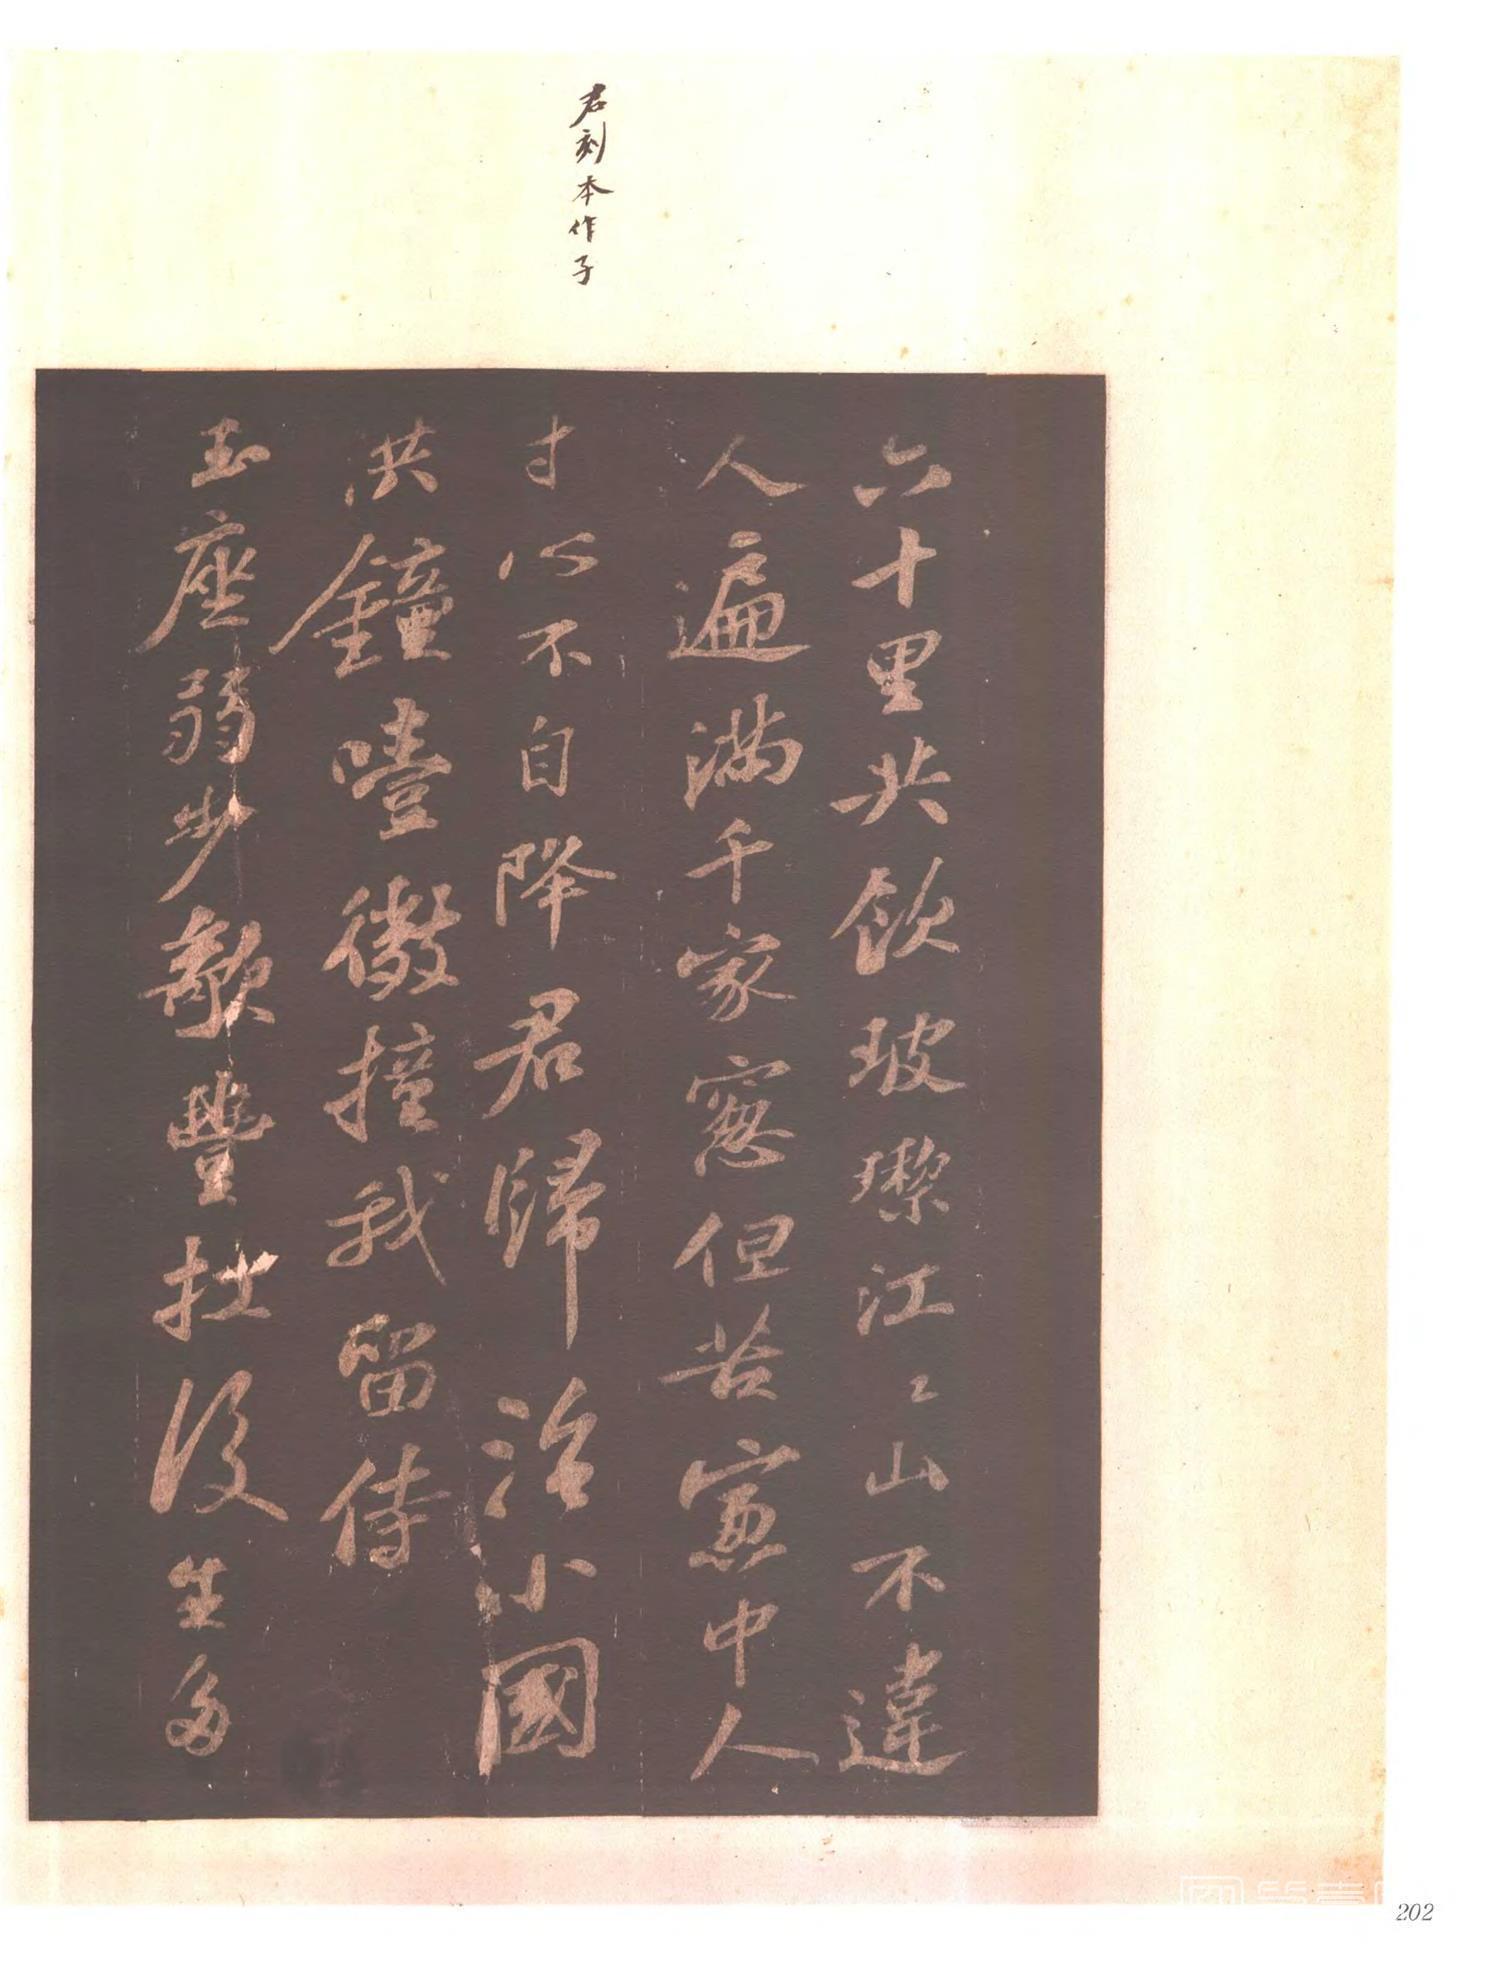 君刻本作子
六十里共飲玻瓈江〻山不違
人遍滿千家窻但苦窻中人
寸心不自降君歸治小國
洪鐘噎微撞我留侍
玉座弱步欹豐扛後生多
202